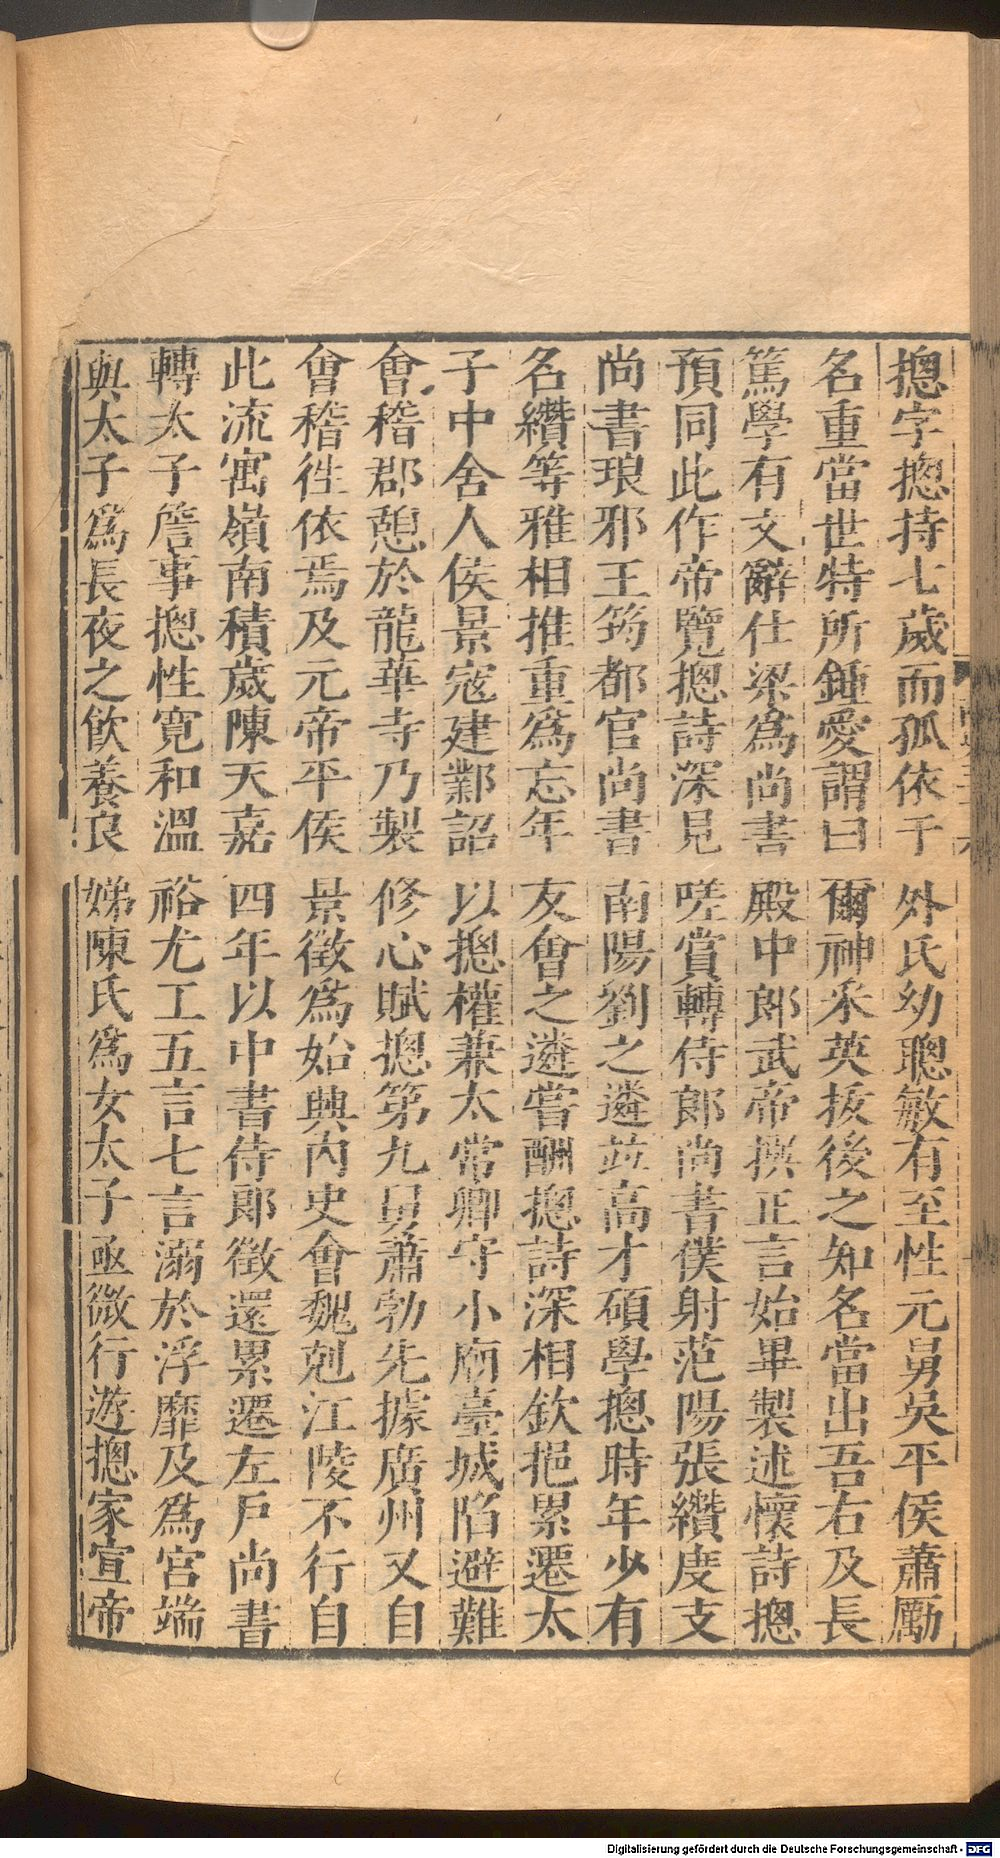 摠字摠持七歲而孤依于外氏幼聰敏有至性元舅吳平侯蕭勵
名重當世特所鍾愛謂曰爾神釆英拔後之知名當出吾右及長
篤學有文辭仕梁爲尚書殿中郎武帝撰正言始畢製述懷詩摠
預同此作帝覽摠詩深見嗟賞轉侍郎尚書僕射范陽張纘度支
尚書琅邪王筠都官尚書南陽劉之遴並高才碩學摠時年少有
名纘等雅相推重爲忘年友會之遴嘗酬摠詩深相欽挹累遷太
子中舍人侯景寇建鄴詔以摠權兼太常卿守小廟臺城陷避難
會稽郡憩於龍華寺乃製修心賦摠第九舅蕭勃先據廣州又自
會稽徃依焉及元帝平侯景徵爲始興內史會魏剋江陵不行自
此流寓嶺南積歲陳天嘉四年以中書侍郎徵還累遷左戶尚書
轉太子詹事摠性寬和溫裕尤工五言七言溺於浮靡及爲宮端
與太子爲長夜之飲養良娣陳氏爲女太子亟微行遊摠家宣帝
Digitalisierung gefördert durch die Deutsche Forschungsgemeinschaft - DFG